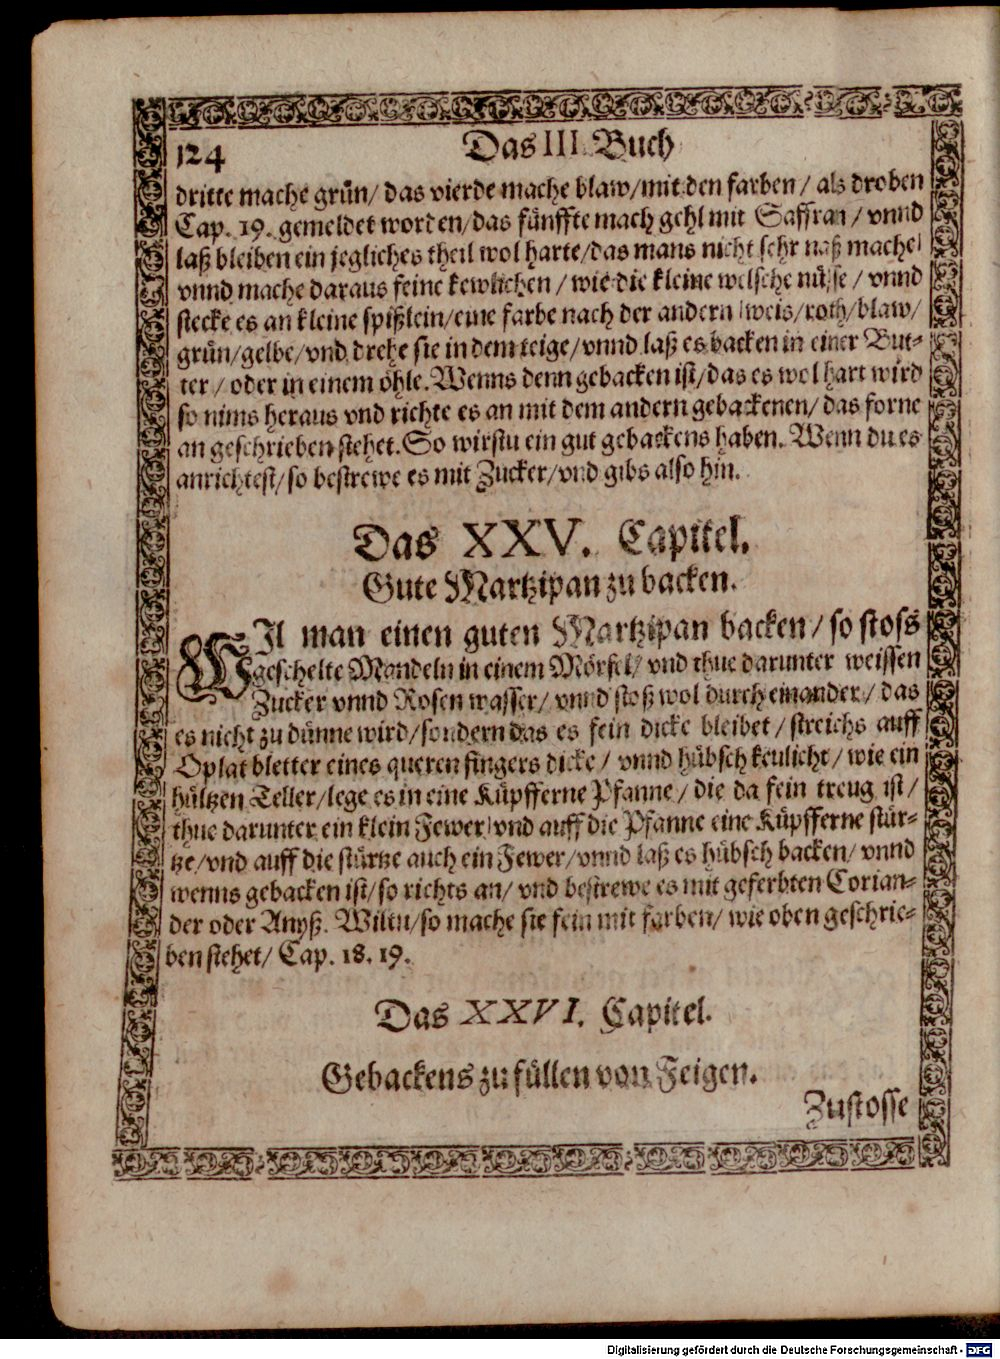 124
Das III. Buch
dritte mache grün/ das vierde mache blaw/mit den farben/ als droben
Cap. 19. gemeldet worden/das fünffte mach gehl mit Saffran/ vnnd
laß bleiben ein jegliches theil wol harte/das mans nicht sehr naß mache/
vnnd mache daraus feine kewlichen/ wie die kleine welsche nüsse/ vnnd
stecke es an kleine spißlein/eine farbe nach der andern/weis/roth/blaw/
grün/gelbe/vnd drehe sie in dem teige/vnnd laß es backen in einer But-
ter/ oder in einem öhle. Wenns denn gebacken ist/das es wol hart wird
so nims heraus vnd richte es an mit dem andern gebackenen/das forne
an geschrieben stehet. So wirstu ein gut gebackens haben. Wenn du es
anrichtest/so bestrewe es mit Zucker/vnd gibs also hin.
Das XXV. Capitel.
Gute Martzipan zu backen.
WIl man einen guten Martzipan backen/ so stoss
geschelte Mandeln in einem Mörsel/ vnd thue darunter weissen
Zucker vnnd Rosen wasser/ vnnd stoß wol durch einander/ das
es nicht zu dünne wird/sondern das es fein dicke bleibet/ streichs auff
Oplat bletter eines queren fingers dicke/ vnnd hübsch keulicht/ wie ein
hültzen Teller/lege es in eine Küpfferne Pfanne/ die da fein treug ist/
thue darunter ein klein Fewer/vnd auff die Pfanne eine Küpfferne stür-
tze/vnd auff die stürtze auch ein Fewer/vnnd laß es hübsch backen/ vnnd
wenns gebacken ist/so richts an/ vnd bestrewe es mit geferbten Corian-
der oder Anyß. Wiltu/so mache sie fein mit farben/ wie oben geschrie-
ben stehet/ Cap. 18. 19.
Das XXVI. Capitel.
Gebackens zu füllen von Feigen.
Zustosse
Digitalisierung gefördert durch die Deutsche Forschungsgemeinschaft - DFG